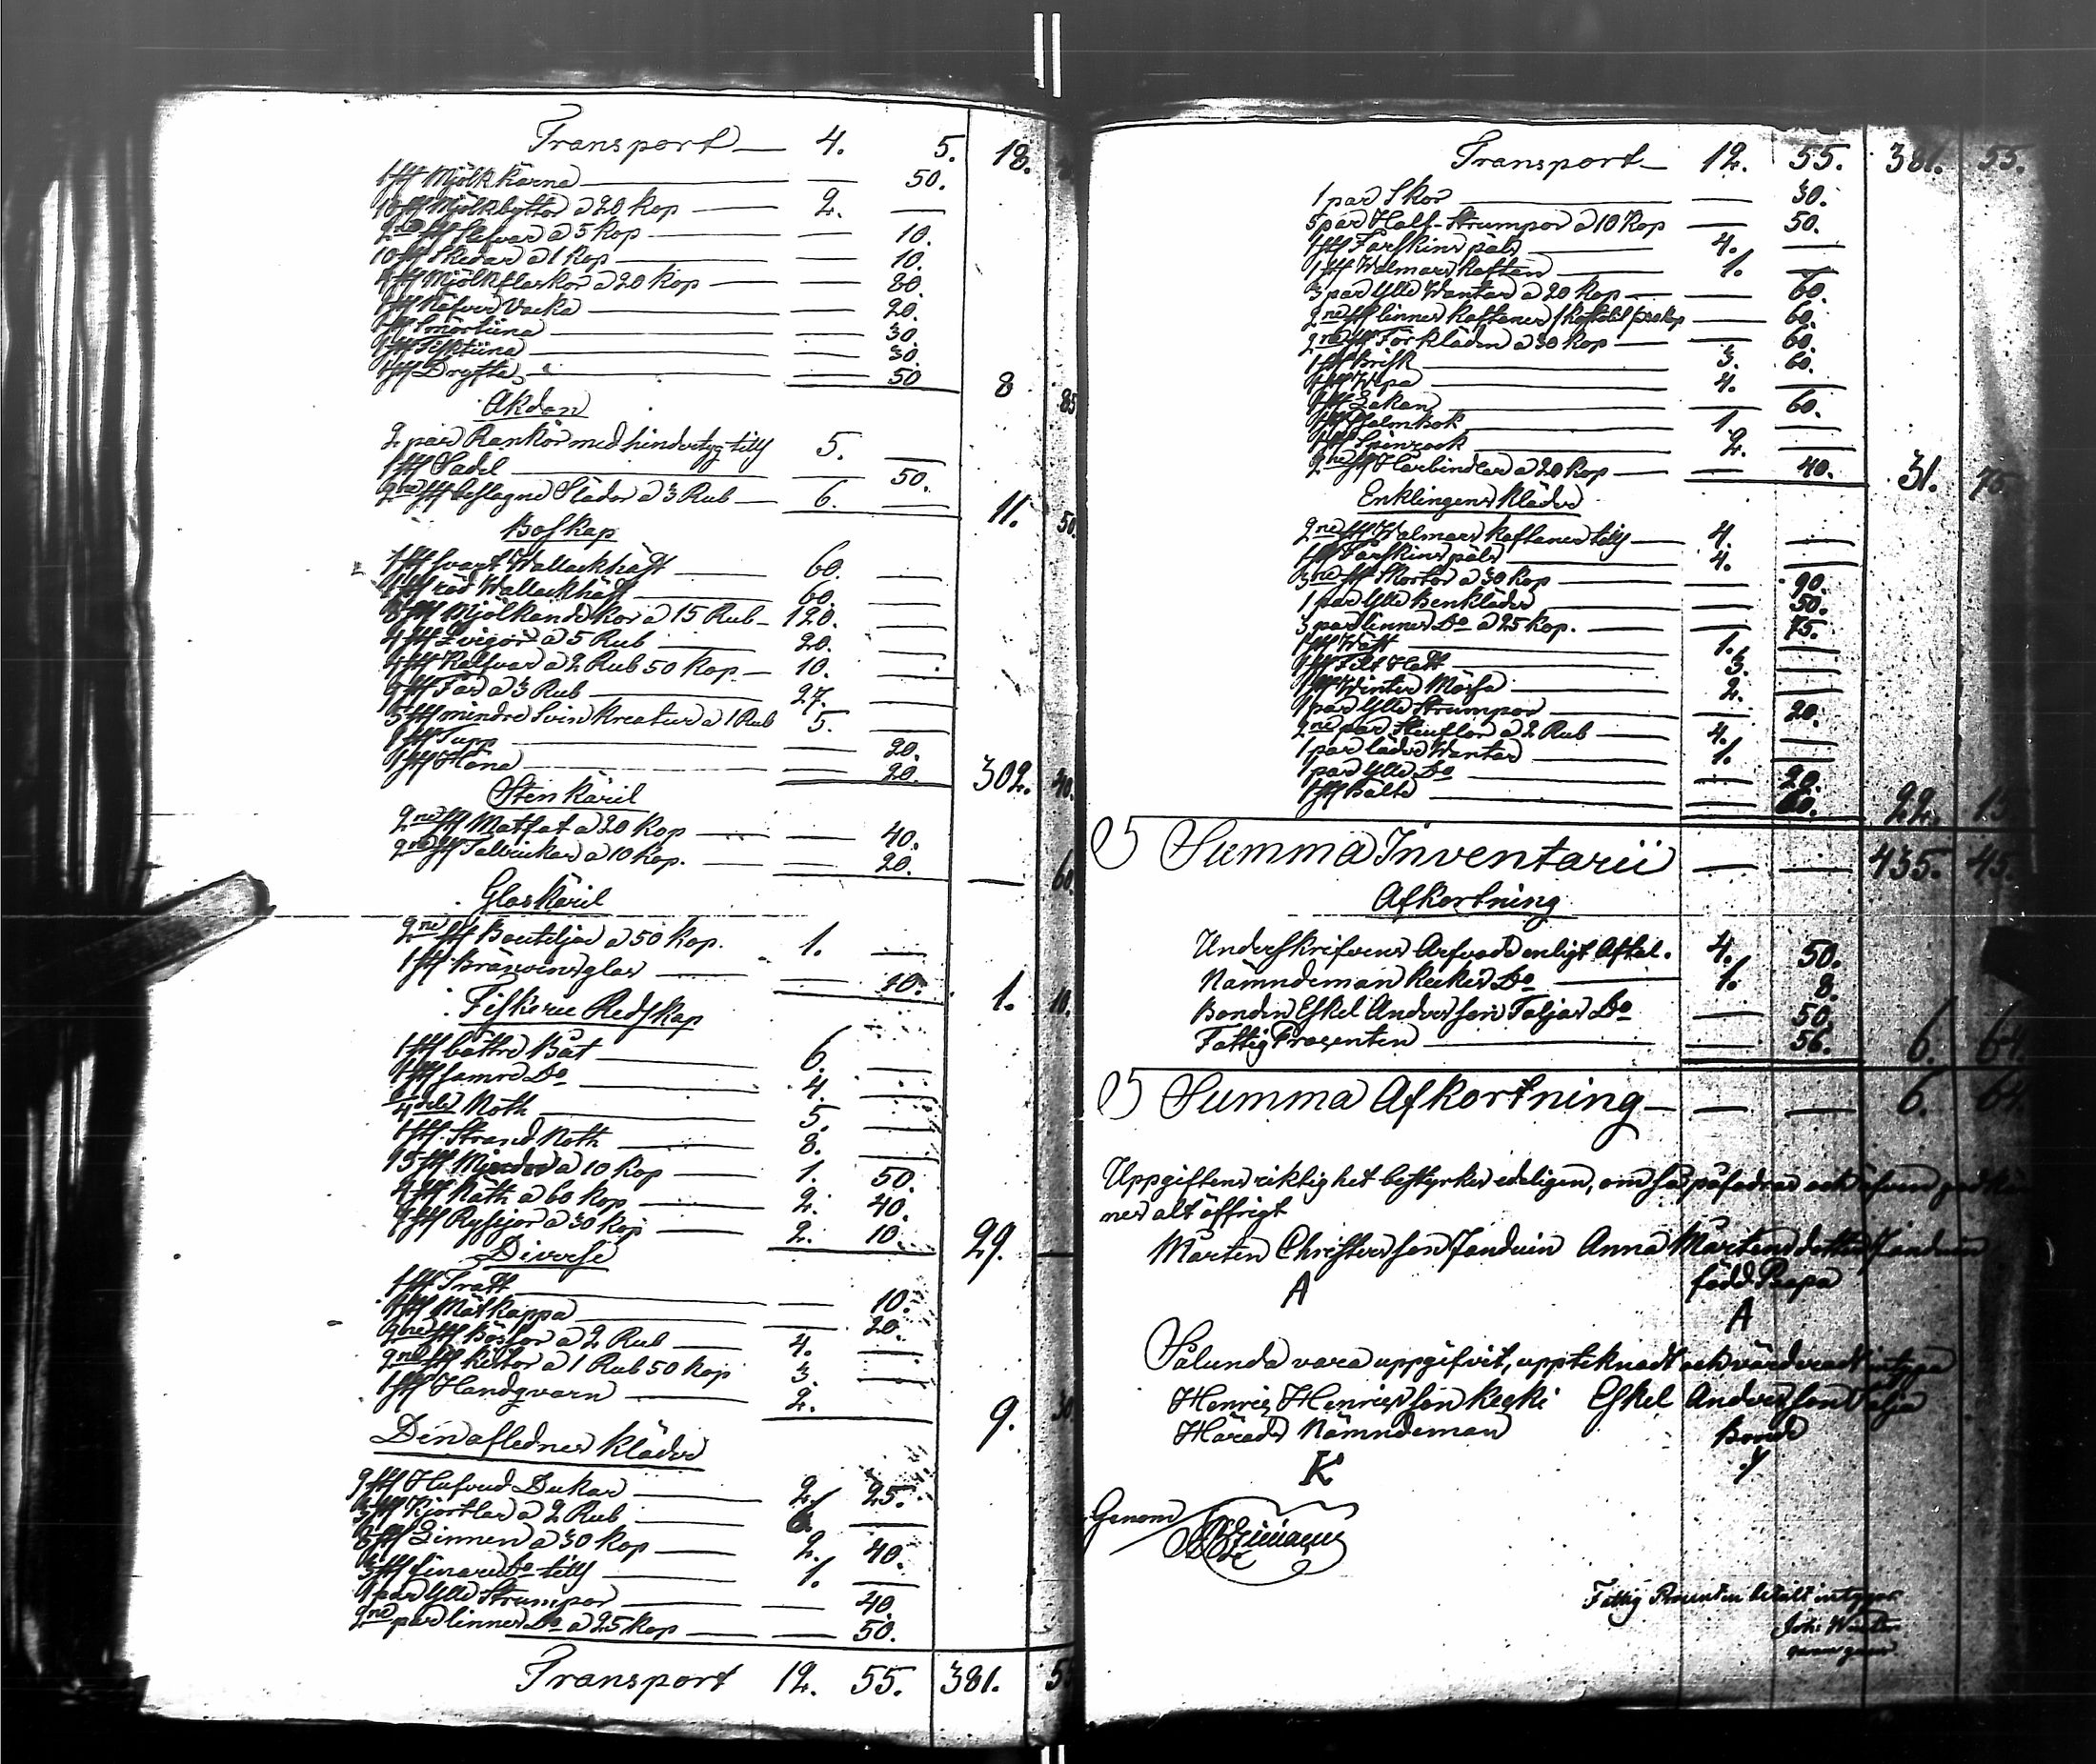 Transport — 4. 5. 18.
1 st Mjölkkärna — — 50.
10 st Mjölkbyttor a 20 Kop — 2. —
2ne st Slefvar a 5 Kop — — 10.
10 st Skedar a 1 Kop — — 10.
4 st Mjölkflaskor a 20 Kop — — 80.
1 st Näfver Vacka — — 20.
1 st Smörtiina — — 30.
1 st Fisktiina — — 30.
1 st Dryfta — — 50 8 85
Åkdon
2 par Rankor med hindertyg tills 5. —
1 st Sadel — — 50.
2ne st beslagne Slädor a 3 Rub — 6. — 11. 50.
Boskap
1 st svart Wallackhäst — 60. —
1 st röd Wallackhäst — 60. —
8 st Mjölkande kor a 15 Rub — 120. —
4 st Qvigor a 5 Rub — 20. —
4 st Kalfvar a 2 Rub 50 Kop — 10. —
9 st Får a 3 Rub — 27. —
5 st mindre Svin kreatur a 1 Rub 5. —
1 st Tupp — — 20.
1 st Höna — — 20. 302. 40.
Stenkäril
2ne st Matfat a 20 Kop — — 40.
2ne st Talrickar a 10 Kop. — — 20. — 60.
Glaskäril
2ne st Bouteljer a 50 Kop. 1. —
1 st Bränvins glas — — 10. 1. 10.
Fiskerie Redskap
1 st bättre Båt — 6. —
1 st samre Do — 4. —
1/4 dels Noth — 5. —
1 st Strand Noth — 8. —
15 st Mjerdor a 10 Kop — 1. 50.
4 st Näth a 60 Kop — 2. 40.
7 st Rysjor a 30 Kop — 2. 10. 29. —
Diverse
1 st Tratt — — 10.
1 st Mätkappa — — 20.
2ne st Bössor a 2 Rub — 4. —
2ne st Kistor a 1 Rub 50 Kop 3. —
1 st Handqvarn — 2. — 9. 30
Den aflednes kläder
9 st Hufvud Dukar — 2. 25.
3 st Kjortlar a 2 Rub — 6. —
8 st Linnen a 30 Kop — 2. 40.
3 st finare Do tills — 1. —
1 par Ylle Strumpor — — 40.
2ne par linnes Do a 25 Kop — — 50.
Transport 12. 55. 381. 55
Transport — 12. 55. 381. 55.
1 par Skor — — 30.
5 par Half-Strumpor a 10 Kop — 50.
1 st Fårskins päls — 4. —
1 st Walmars Kaftan — 1. —
3 par Ylle Wantar a 20 Kop — — 60.
2ne st linnes Kaftaner — 60.
2ne st Förkläden a 30 Kop — — 60.
1 st Brisk — 3. 60.
1 st Wepa — 4. —
1 st Lakan — — 60.
1 st Psalmbok — 1. —
1 st Spinrock — 2. —
2ne st Harbindlar a 20 Kop — — 40. 31. 75.
Enklingens Kläder
2ne st Walmars Kaftaner tills — 4. —
1 st Fårskins päls — 4. —
3ne st Skortor a 30 Kop — — 90.
1 par Ylle Benkläder — — 50.
3 par linnes Do a 25 Kop. — — 75.
1 st Wäst — 1. —
1 st Filt Hatt — 3. —
1 st Winter Mössa — 2. —
1 par Ylle Strumpor — — 20.
2ne par Stieflor a 2 Rub — 4. —
1 par läder Wantar — 1. —
1 par Ylle Do — — 20.
1 st Bälte — — 60. 22. 15
Summa Inventarii — — 435. 45.
Afkortning
Underskrifvens Arfvode enligt Aftal. 4. 50.
Nämndeman Keckis Do — 1. 8.
Bonden Eskel Andersson Taljas Do — 50.
Fattig Procenten — — 56. 6. 64.
Summa Afkortning — — — 6. 64.
Uppgiftens riktighet bestyrkes edeligen, om så påfodras och äfven godkän
nes alt öffrigt
Mårten Christersson Janduin Anna Mårtensdotter Janduin
A född Papa
A
Sålunda vara uppgifvit, uppteknadt och värderadt intyga
Henric Henricsson Kecki Eskel Andersson Talja
Härads Nämndeman Bonde
K
Genom
Fattig Procenten betalt intygar
Joh: Winter